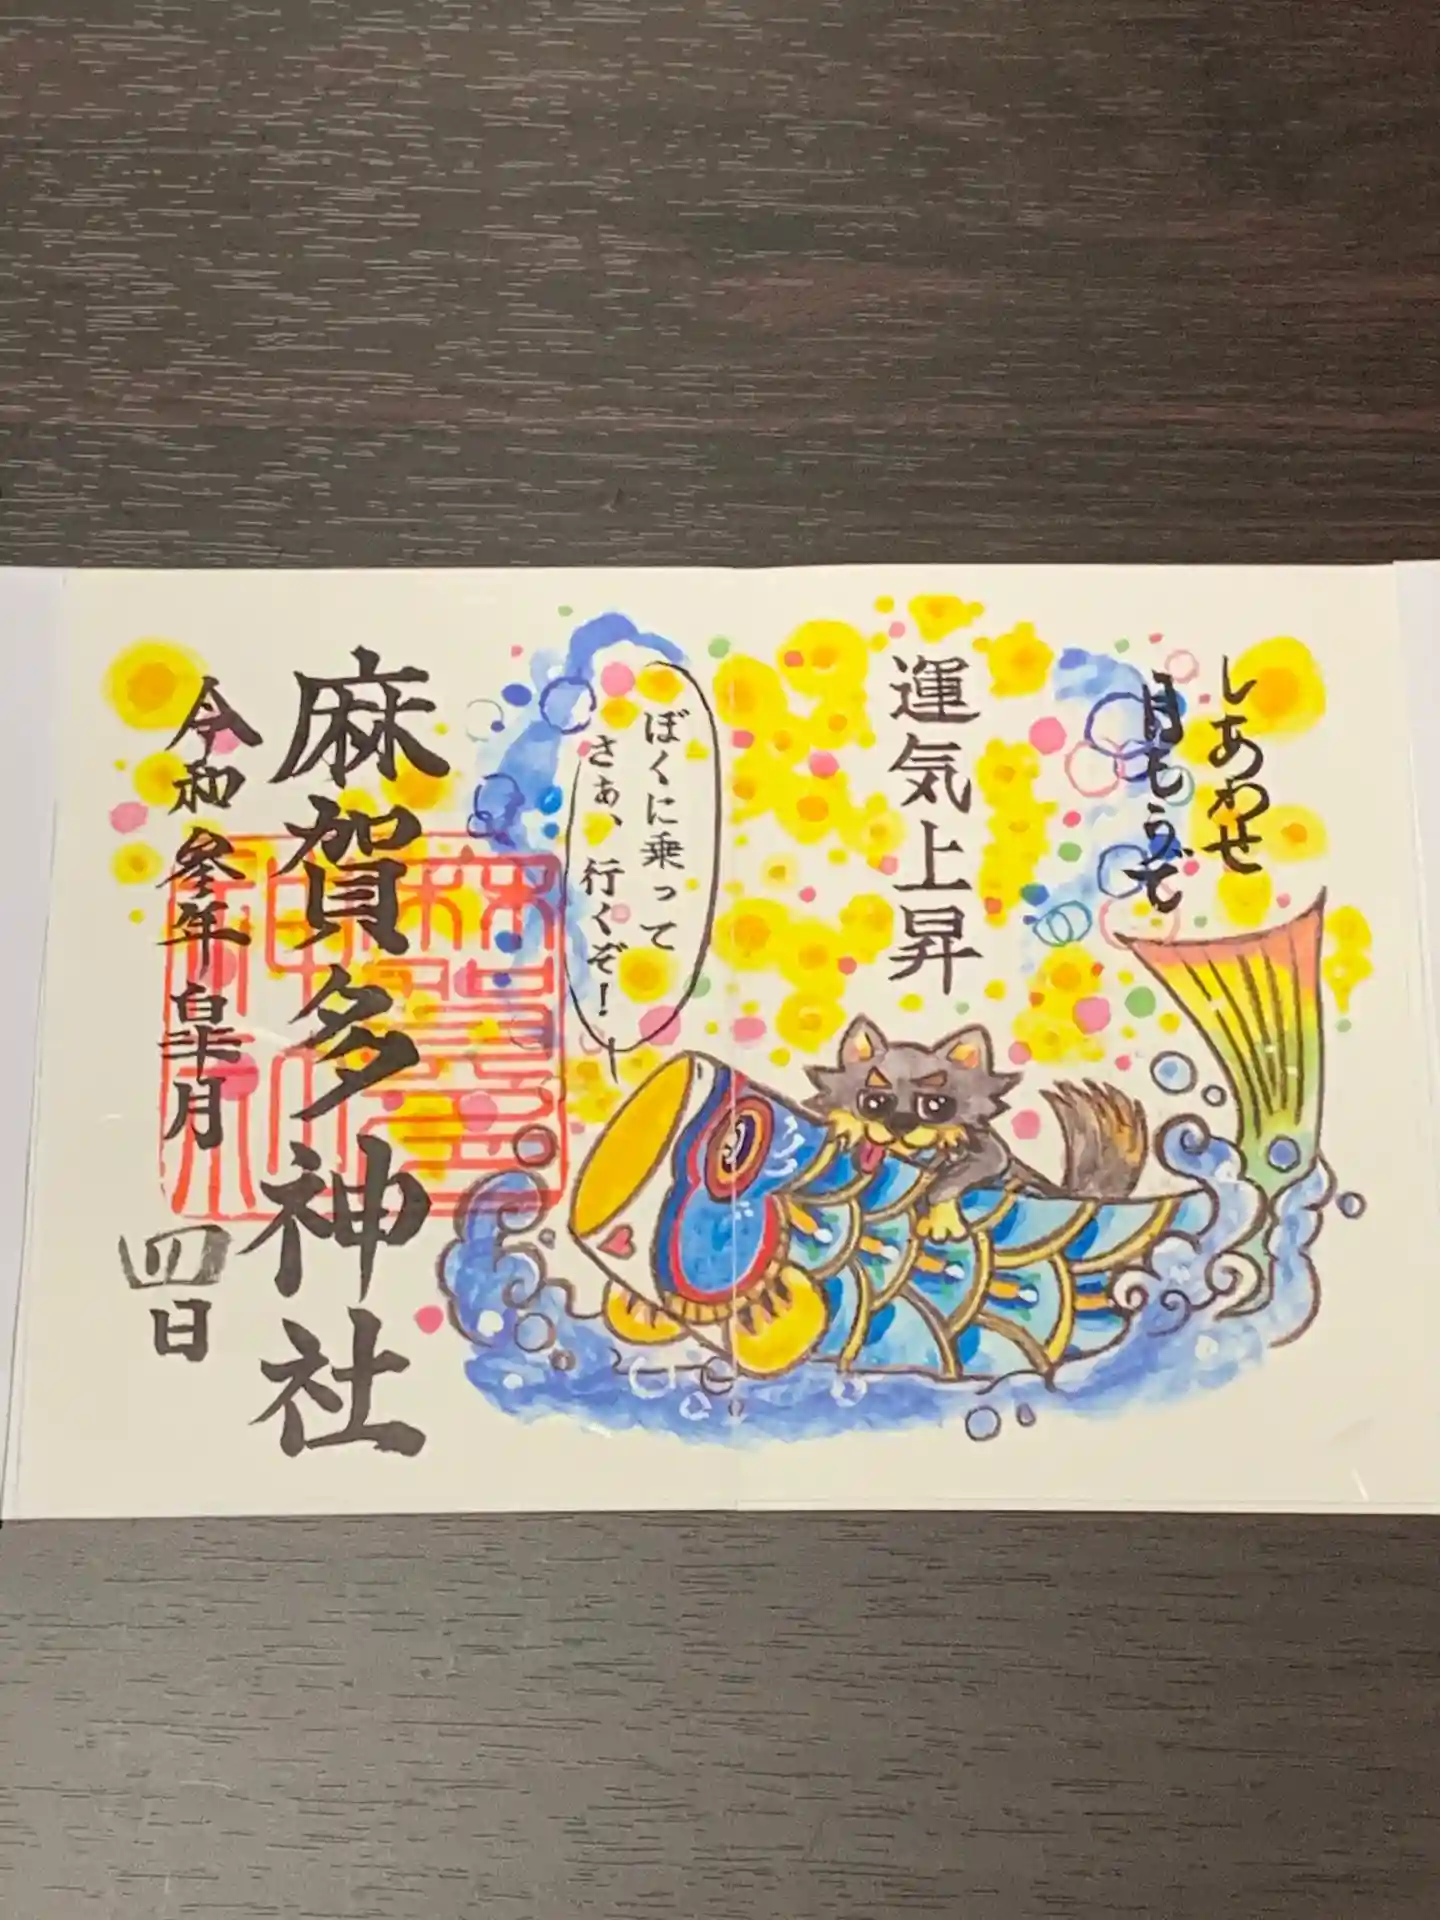 しあわせ
月もうで
運気上昇
ぼくに乗って
さぁ、行くぞ！
麻賀多神社
令和参年皐月
四日